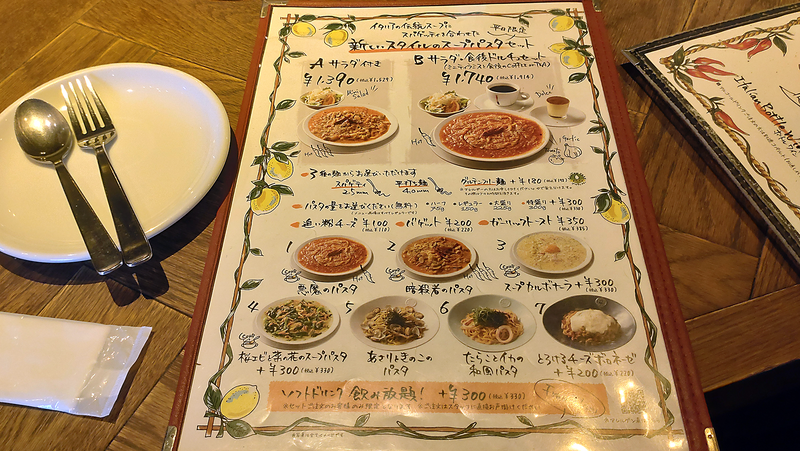 イタリアの伝統スープに
スパゲッティを合わせた 平日限定
新しいスタイルのスープパスタセット
A サラダ付き
¥1.390 (tax¥1,529)
B サラダ・食後ドルチェセット
¥1.740 (tax¥1,914)
Mini Salad
Dolce
Hot
Hot
Garlic
3種の麺からお選びいただけます
スパゲティ 2.5mm
平打ち麺 4.0mm
グルテンフリー麺 +¥180
パスタの量をお選びください(無料)
・ハーフ 75g ・レギュラー 150g ・大盛り 225g ・特盛り 300g +¥300 (tax¥330)
追い粉チーズ ¥100 (tax¥110)
バゲット ¥200 (tax¥220)
ガーリックトースト ¥350 (tax¥385)
1
2
3
Hot
悪魔のパスタ
暗殺者のパスタ
スープカルボナーラ +¥300 (tax¥330)
4
5
6
7
桜エビと菜の花のスープパスタ
+¥300 (tax¥330)
あさりときのこの
パスタ
たらことイカの
和風パスタ
とろけるチーズボロネーゼ
+¥200 (tax¥220)
ソフトドリンク 飲み放題! +¥300 (tax¥330)
Italian